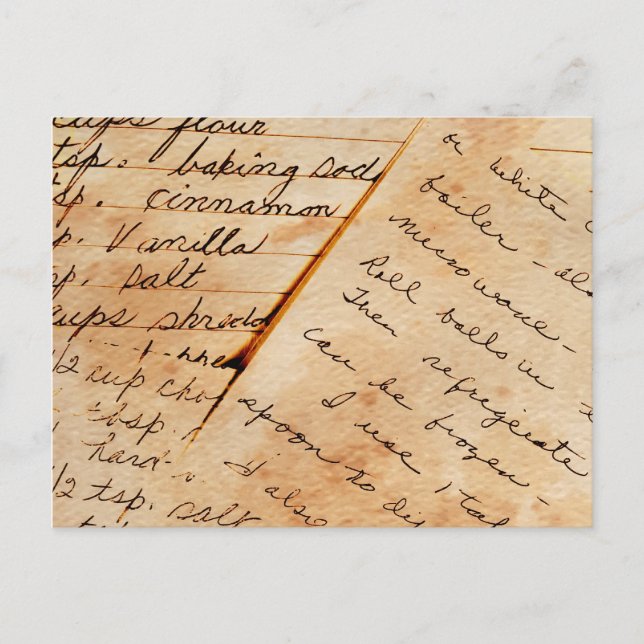 cups flour
tsp. baking sod
tsp. cinnamon
p. Vanilla
p. salt
cups shredd
1/2 cup cho
tbsp.
hard-
1/2 tsp. salt
or white
boiler - als
microwave -
Roll balls in
Then refrigerate
can be frozen -
I use 1 ta
spoon to di
I also